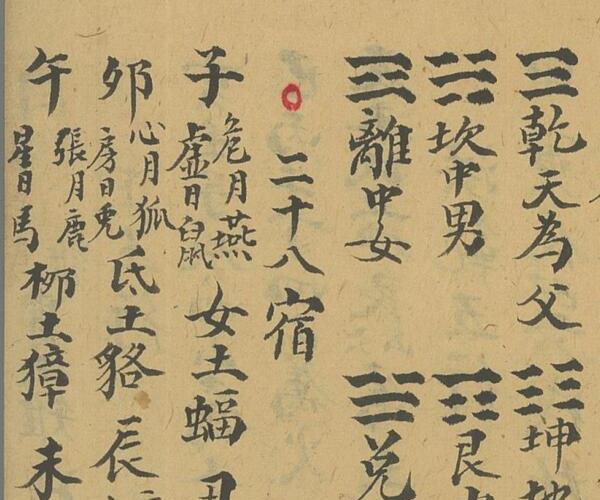 ☰乾天為父 ☷坤
☵坎中男 ☶艮
☲離中女 ☱兌
二十八宿
子 危月燕 虛日鼠 女土蝠
卯 心月狐 房日兎 氐土貉 辰
午 張月鹿 星日馬 柳土獐 未